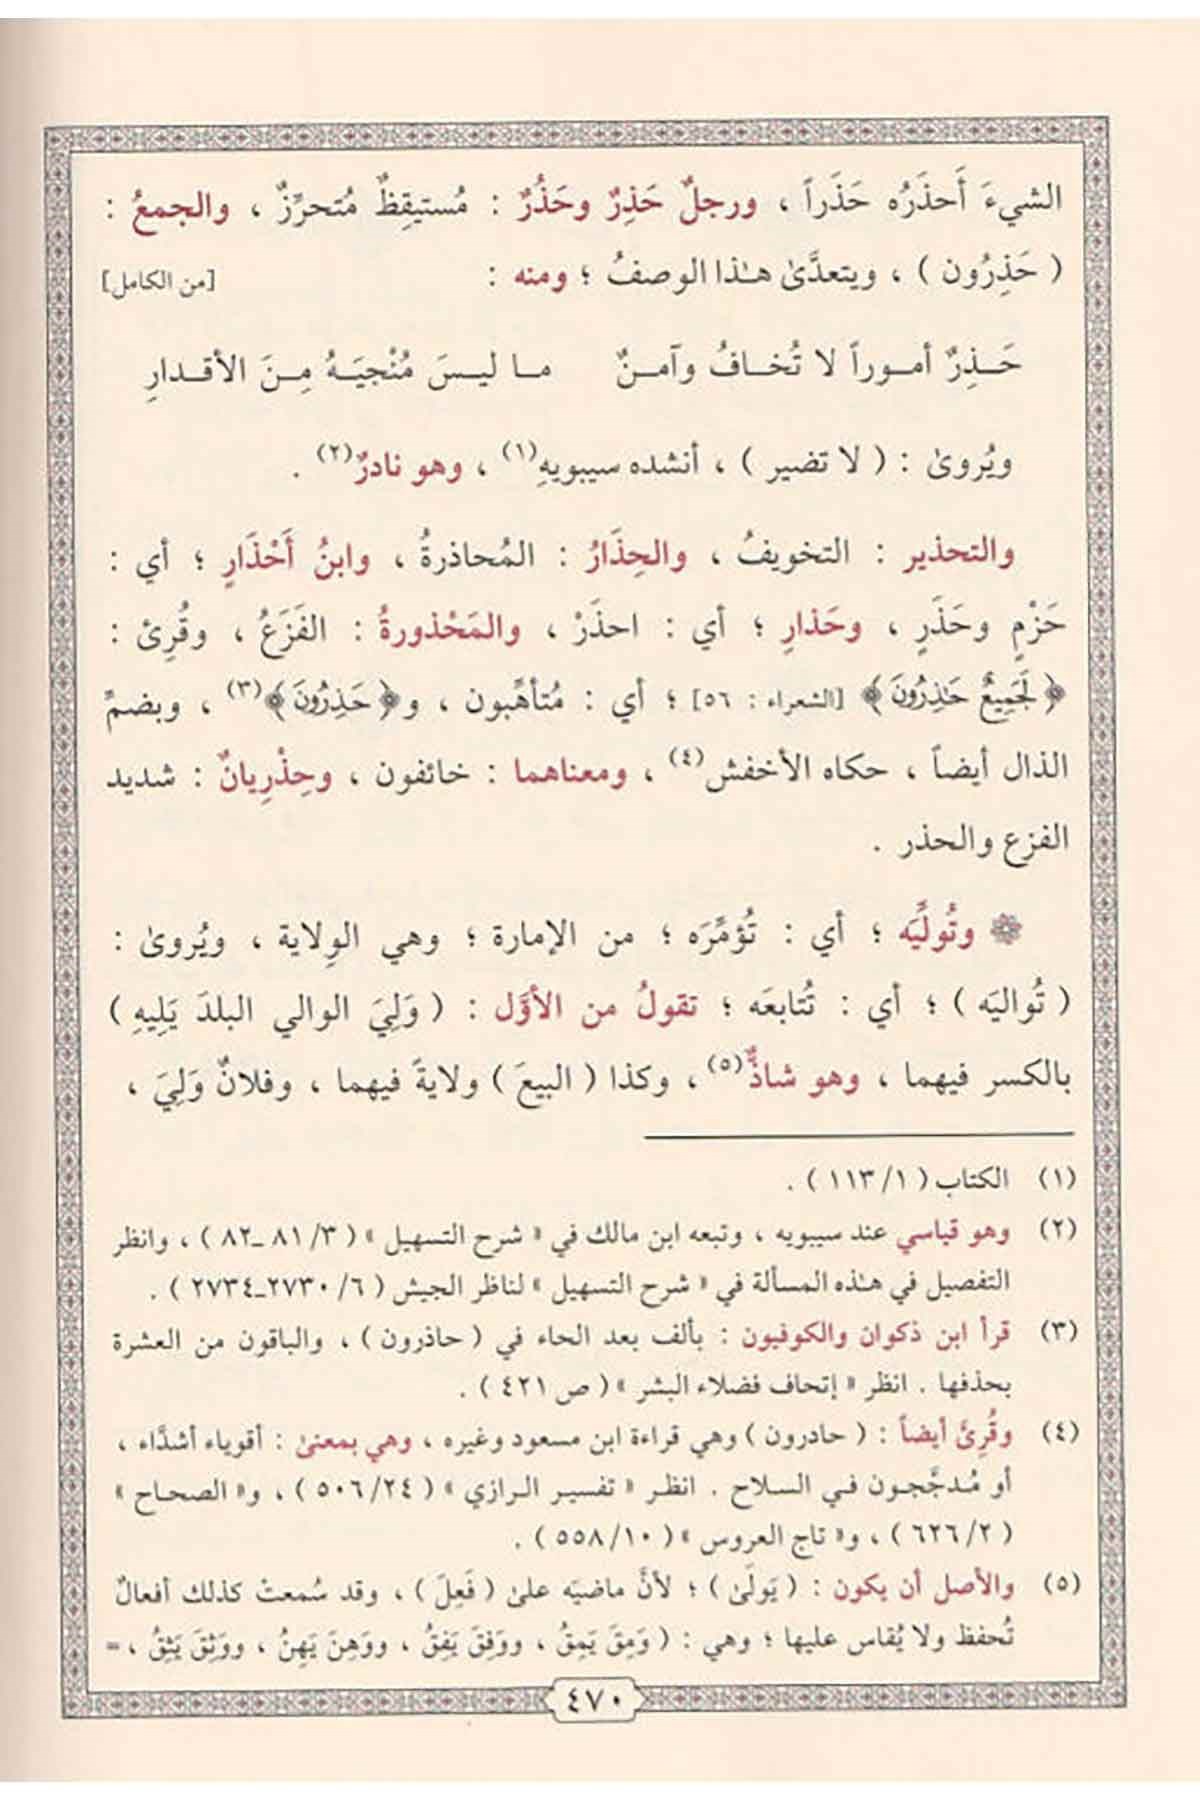 الشيءَ أَحذَرُه حَذَراً ، ورجلٌ حَذِرٌ وحَذُرٌ : مُستيقِظٌ مُتحرِّزٌ ، والجمعُ :
( حَذِرُون ) ، ويتعدَّىٰ هـٰذا الوصفُ ؛ ومنه : [من الكامل]
حَـذِرٌ أمـوراً لا تُخـافُ وآمـنٌ مـا ليـسَ مُنْجيَـهُ مِـنَ الأقـدارِ
ويُروىٰ : ( لا تضير ) ، أنشده سيبويهِ(١) ، وهو نادرٌ(٢) .
والتحذير : التخويفُ ، والحِذَارُ : المُحاذرةُ ، وابنُ أَحْذَارٍ ؛ أي :
حَزْمٍ وحَذَرٍ ، وحَذارِ ؛ أي : احذَرْ ، والمَحْذورةُ : الفَزَعُ ، وقُرِئ :
﴿ لَجَمِيعٌ حَـٰذِرُونَ ﴾ [الشعراء : ٥٦] ؛ أي : مُتأهِّبون ، و﴿ حَذِرُونَ ﴾(٣) ، وبضمِّ
الذال أيضاً ، حكاه الأخفش(٤) ، ومعناهما : خائفون ، وحِذْرِيانٌ : شديد
الفزع والحذر .
❁ وتُولِّيَه ؛ أي : تُؤمِّرَه ؛ من الإمارة ؛ وهي الوِلاية ، ويُروىٰ :
( تُواليَه ) ؛ أي : تُتابعَه ؛ تقولُ من الأوَّل : ( وَلِيَ الوالي البلدَ يَلِيهِ )
بالكسر فيهما ، وهو شاذٌّ(٥) ، وكذا ( البيعَ ) ولايةً فيهما ، وفلانٌ وَلِيَ ،
(١) الكتاب ( ١/ ١١٣ ) .
(٢) وهو قياسي عند سيبويه ، وتبعه ابن مالك في « شرح التسهيل » ( ٣/ ٨١ـ ٨٢ ) ، وانظر
التفصيل في هـٰذه المسألة في « شرح التسهيل » لناظر الجيش ( ٦/ ٢٧٣٠ـ٢٧٣٤ ) .
(٣) قرأ ابن ذكوان والكوفيون : بألف بعد الحاء في ( حاذرون ) ، والباقون من العشرة
بحذفها . انظر « إتحاف فضلاء البشر » ( ص ٤٢١ ) .
(٤) وقُرِئَ أيضاً : ( حادرون ) وهي قراءة ابن مسعود وغيره ، وهي بمعنىٰ : أقوياء أشدَّاء ،
أو مُدجَّجون في السلاح . انظر « تفسير الرازي » ( ٢٤/ ٥٠٦ ) ، و« الصحاح »
( ٢/ ٦٢٦ ) ، و« تاج العروس » ( ١٠/ ٥٥٨ ) .
(٥) والأصل أن يكون : ( يَولَىٰ ) ؛ لأنَّ ماضيَه علىٰ ( فَعِلَ ) ، وقد سُمعتْ كذلك أفعالٌ
تُحفظ ولا يُقاس عليها ؛ وهي : ( وَمِقَ يَمِقُ ، ووَفِقَ يَفِقُ ، ووَهِنَ يَهِنُ ، ووَثِقَ يَثِقُ ، =
٤٧٠